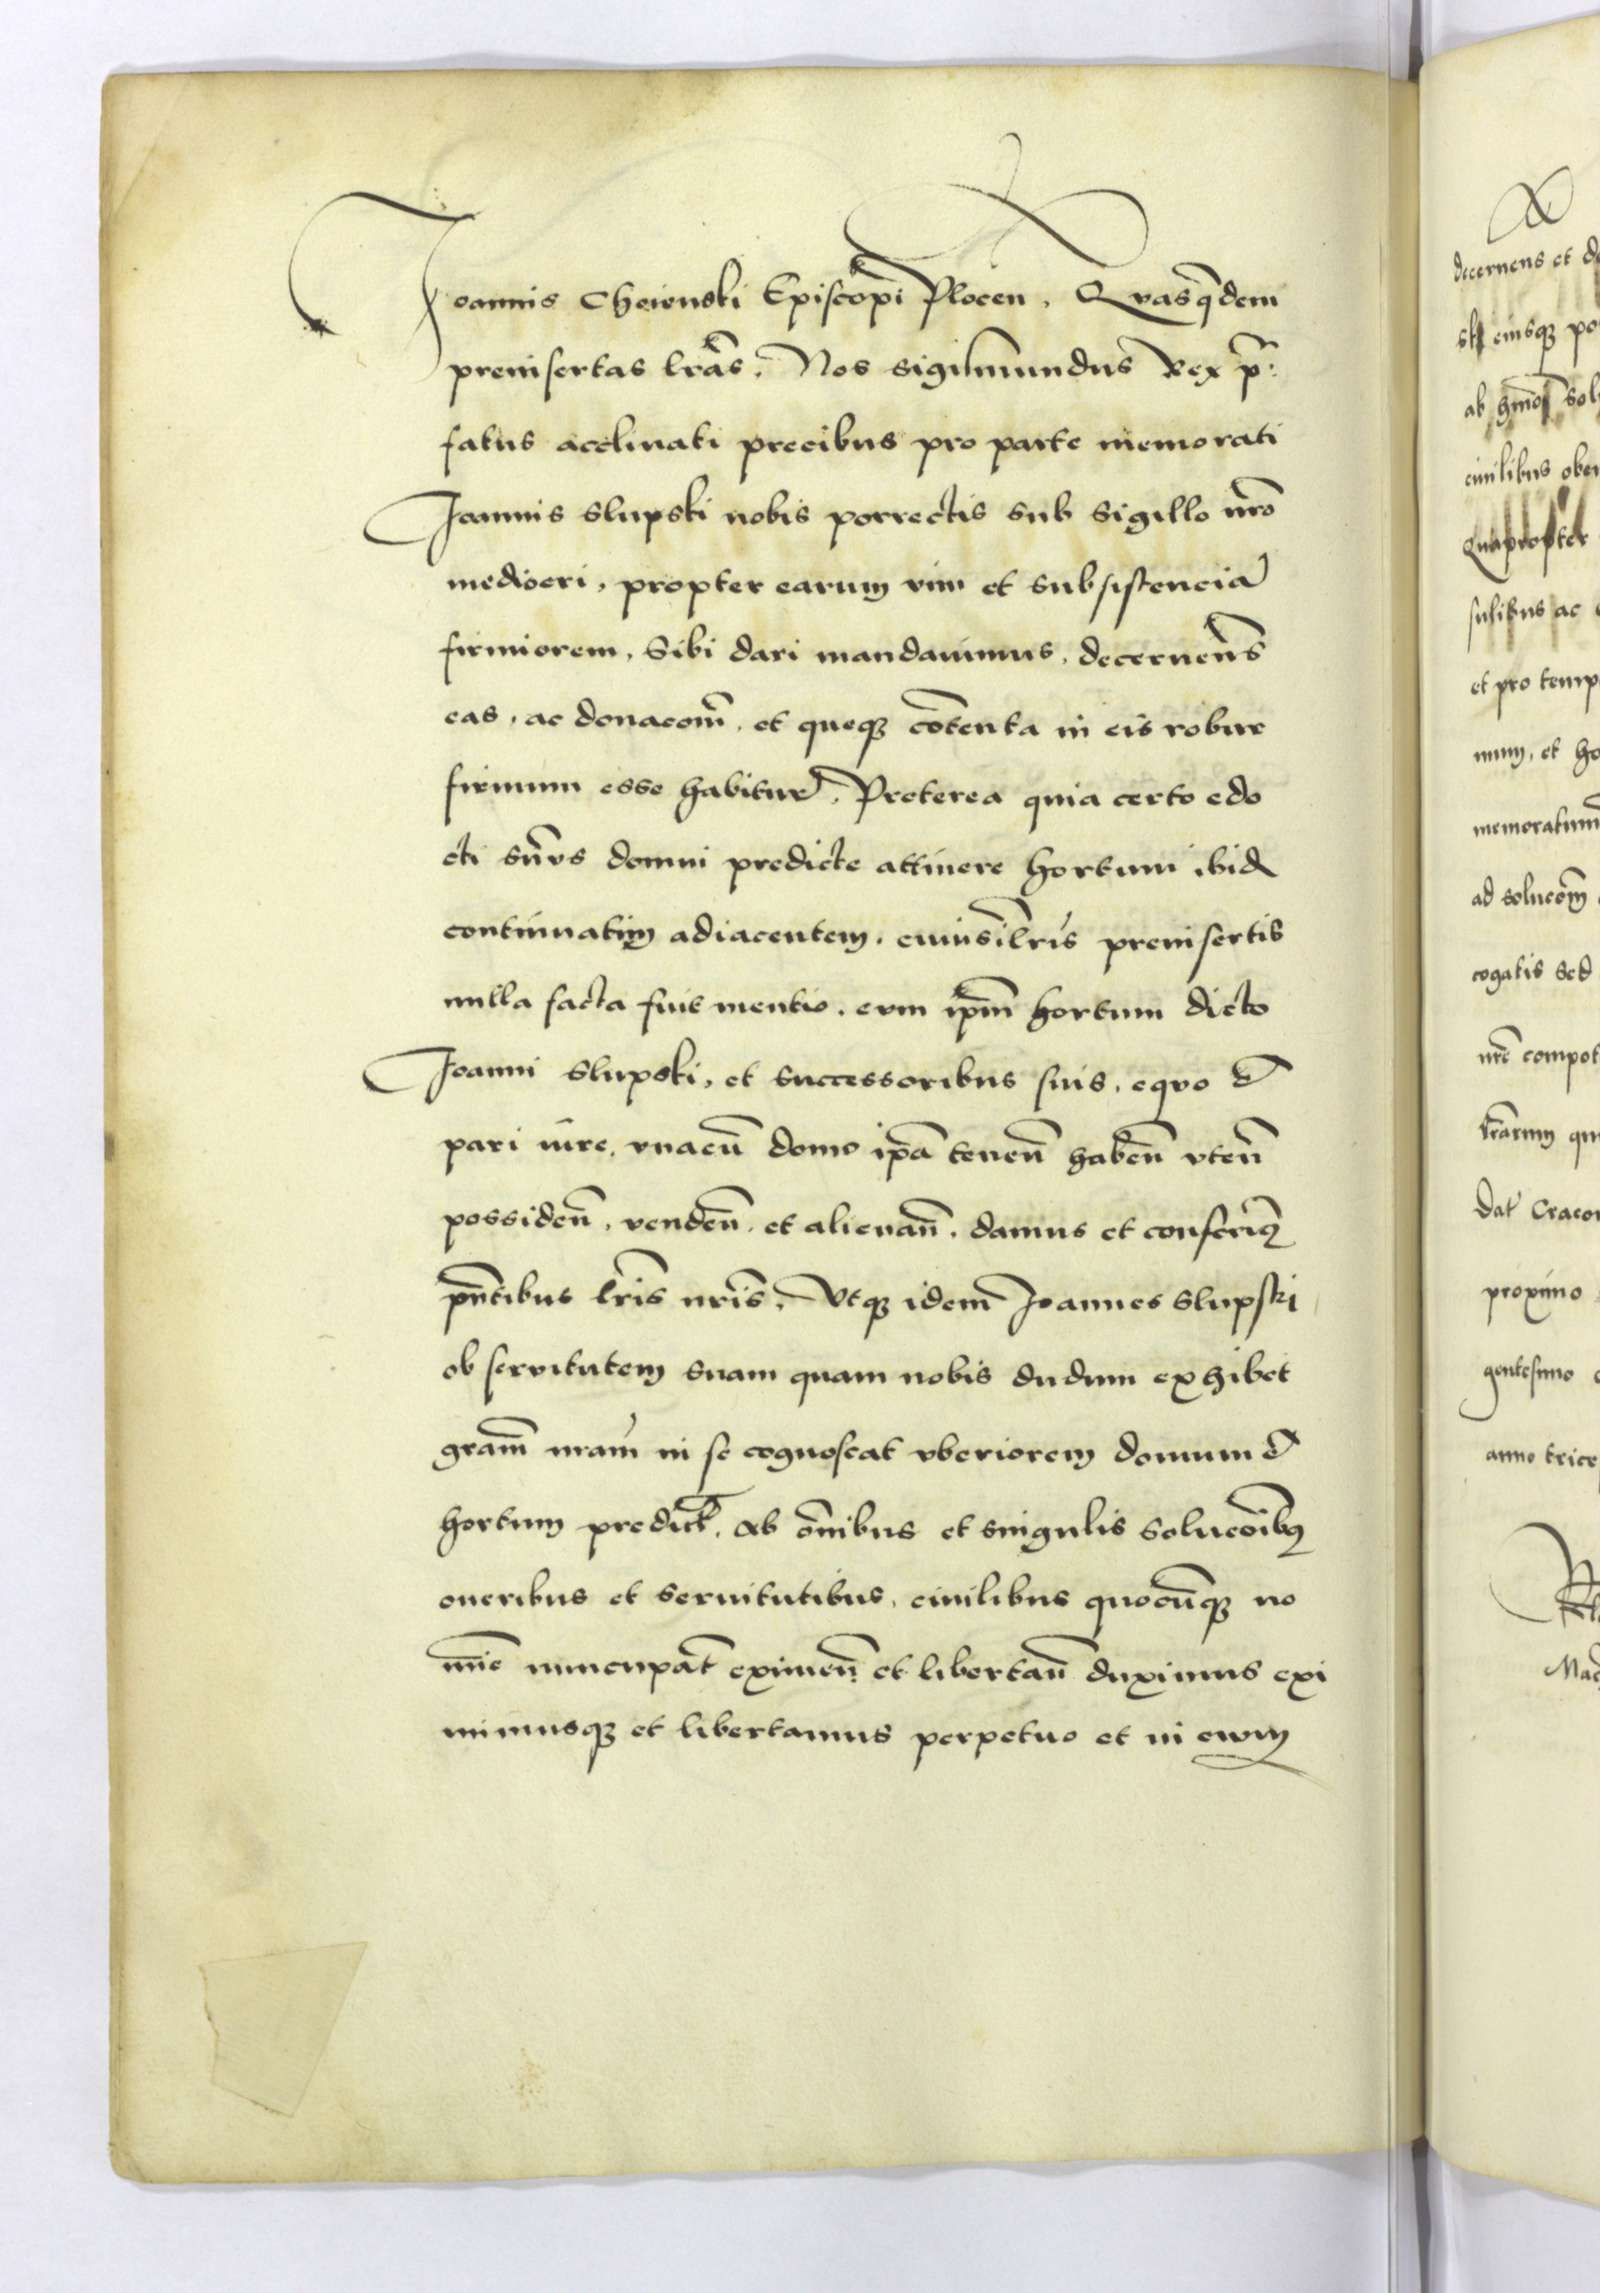 Joannis Choienski Episcopi Plocen. Quasq̄dem
preinsertas lrās. Nos Sigismundus Rex p̄:
fatus acclinati precibus pro parte memorati
Joannis Slupski nobis porrectis sub sigillo nrō
mediocri, propter earum vim et subsistenciā
firmiorem, Sibi dari mandauimus, decernens̄
eas, ac donacom̄, et queqꝫ cōtenta in eis robur
firmum esse habitur̄. Preterea quia certo edo
cti sum̄s domui predicte attinere hortum ibid̄
continuatim adiacentem, cuius ī lrīs preinsertis
nulla facta fuit mentio, eum ip̄m hortum dicto
Joanni Slupski, et successoribus suis, equo &
pari iure, vnacū domo ip̄a tenen̄ haben̄ vten̄
possiden̄, venden̄, et alienan̄, damus et conferimꝰ
pn̄tibus lrīs nrīs. Vtqꝫ idem Joannes Slupski
ob servitutem suam quam nobis dudum exhibet
grām nrām in se cognoscat vberiorem domum &
hortum predict̄, ab om̄nibus et singulis solucōibꝰ
oneribus et seruitutibus, ciuilibus quocūqꝫ no
mīe nuncupat̄ eximen̄ et libertan̄ duximus exi
mimusqꝫ et libertamus perpetuo et in ewm
decernens et
eiusqꝫ
ab
ciuilibus
Quapropter
sulibus ac
et pro temp
num, et ho
memoratum
ad solucom̄
cogatis sed
nrē compot
lrārum qui
Dat̄ Cracou
proximo
gentesimo
anno trice
Mac